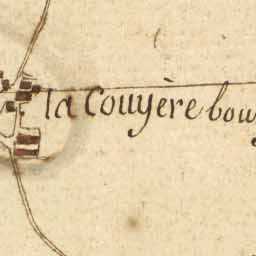 la Couyère bou